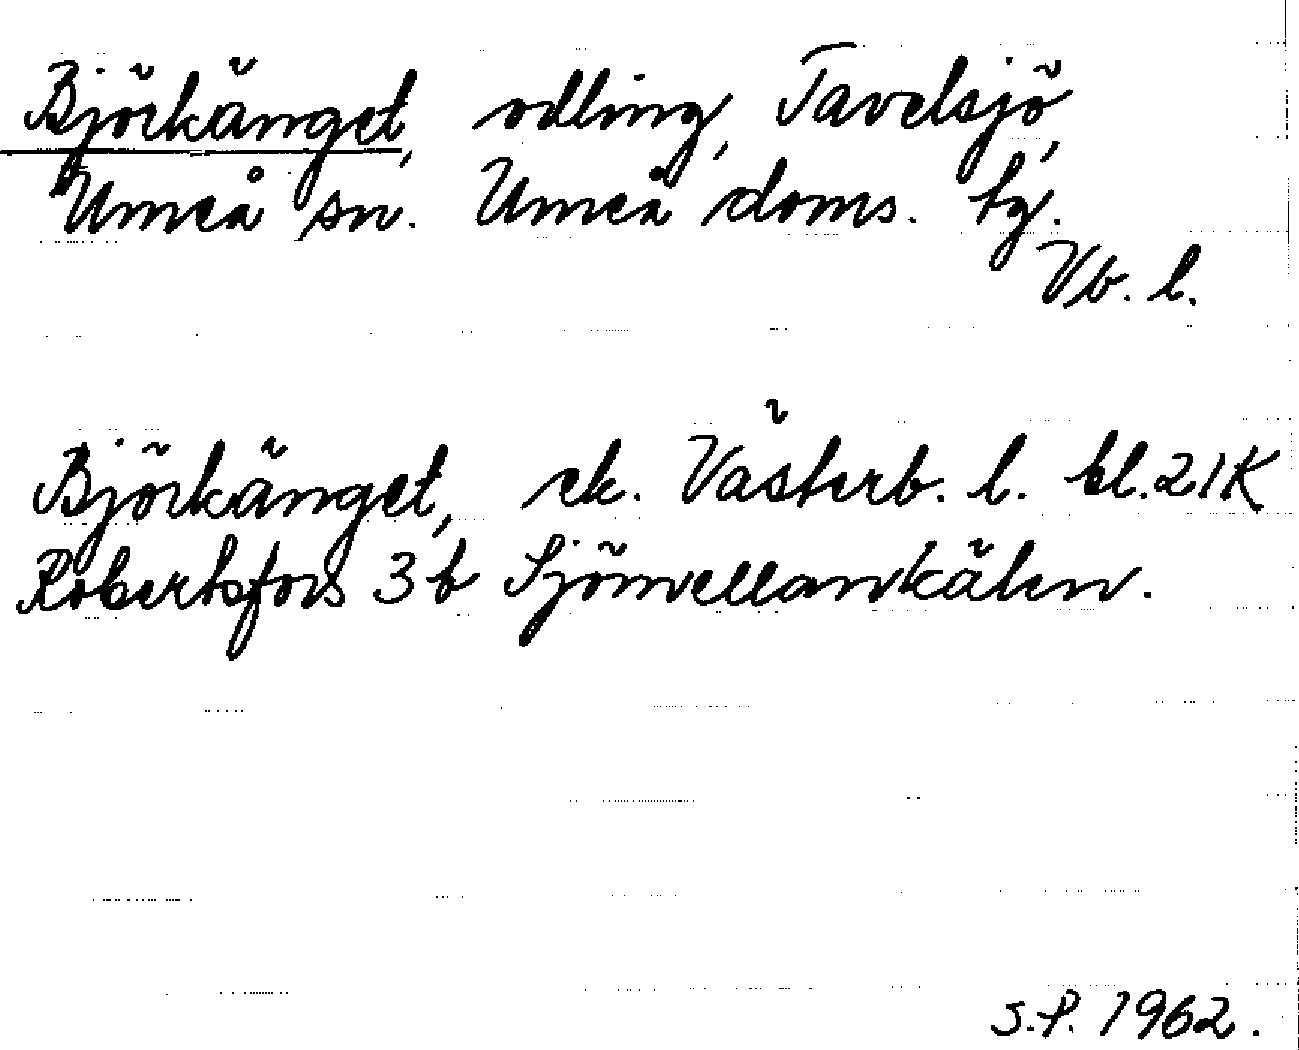 Björkänget, odling, Tavelsjö,
Umeå sn. Umeå doms. tg.
Vb. l.
Björkänget, ek. Västerb. l. bl. 21K
Robertsfors 3 b Sjömellankälen.
S.P. 1962.